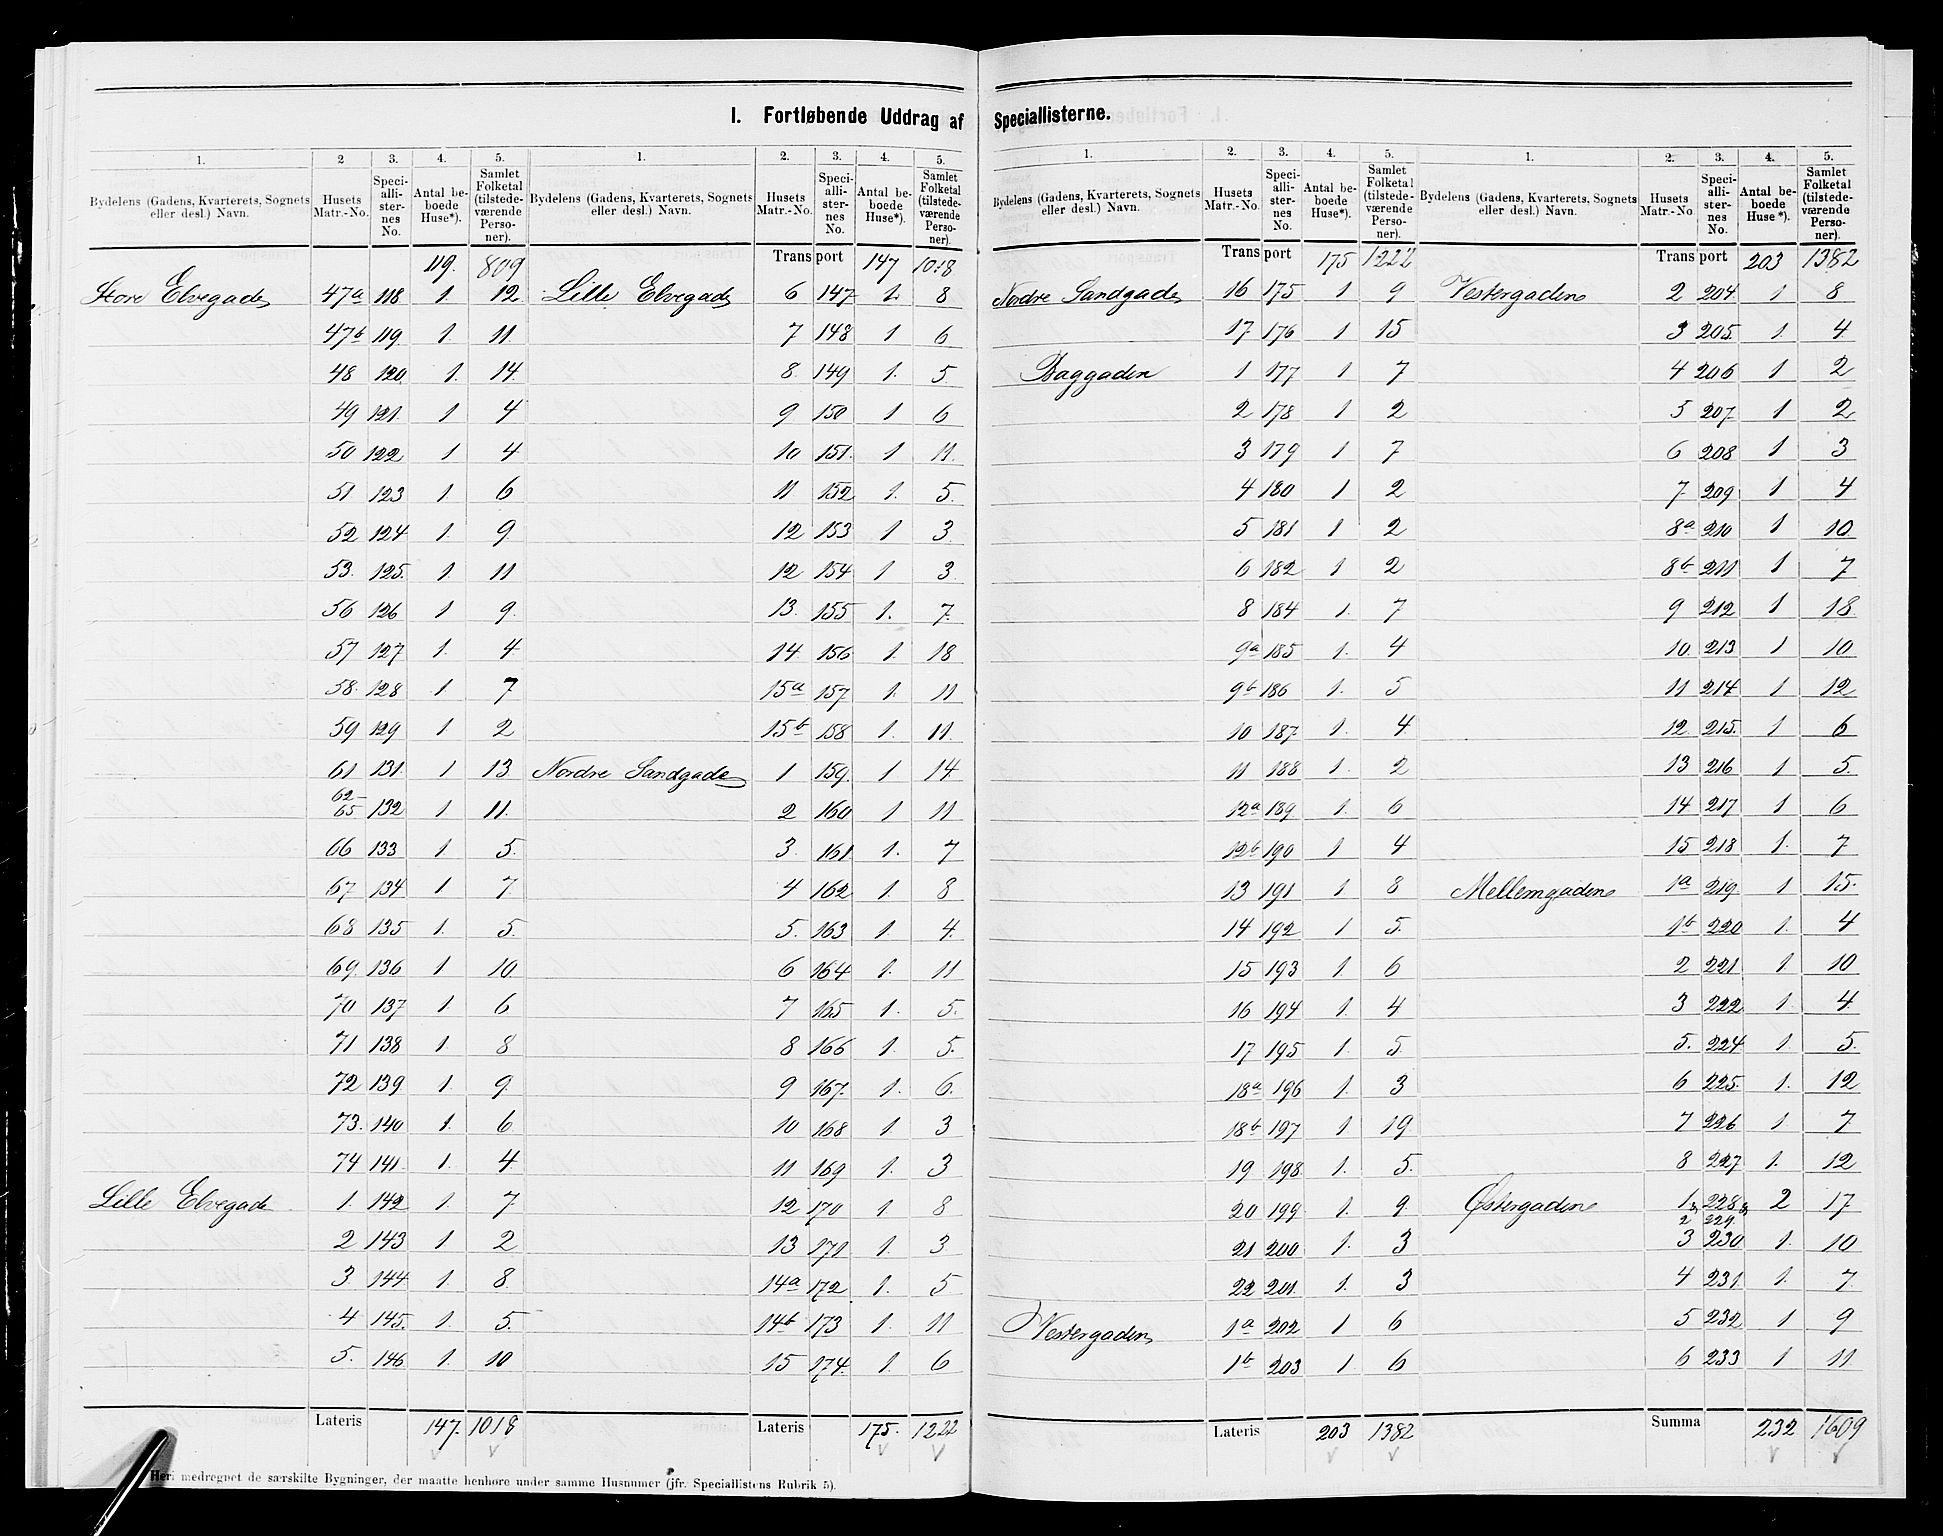 I. Fortløbende Uddrag af Speciallisterne.
1. 2 3. 4. 5. 1. 2. 3. 4. 5.
Bydelens (Gadens, Kvarterets, Sognets eller desl.) Navn. Husets Matr.-No. Speciallisternes No. Antal beboede Huse*). Samlet Folketal (tilstedeværende Personer). Bydelens (Gadens, Kvarterets, Sognets eller desl.) Navn. Husets Matr.-No. Speciallisternes No. Antal beboede Huse*). Samlet Folketal (tilstedeværende Personer).
119. 809 Transport 147 1018
Store Elvegade 47a 118 1. 12 Lille Elvegade 6 147 1. 8
47b 119. 1. 11. 7 148 1 6
48 120. 1. 14. 8. 149 1. 5
49 121. 1 4 9 150 1 6
50 122 1 4 10 151. 1 11.
51 123 1 6 11 152 1. 5.
52 124 1 9. 12 153 1 3.
53. 125. 1. 11 12 154 1 3.
56 126 1 9. 13. 155 1. 7.
57 127 1. 4 14. 156 1. 18
58. 128 1 7 15a 157 1. 11
59 129 1 2 15b 158 1. 11.
61 131. 1 13 Nordre Sandgade 1 159. 1 14.
62-65 132 1 11. 2 160 1 11
66 133 1 5. 3. 161 1. 7
67 134 1 7 4 162 1. 8
68 135 1. 5. 5. 163 1. 4.
69. 136 1 10 6 164 1. 11
70 137 1. 6 7 165 1. 5.
71 138 1 8 8 166 1. 5.
72 139 1. 9. 9 167. 1. 6.
73. 140 1. 6 10 168 1 3
74 141. 1. 4 11 169 1. 3
Lille Elvegade 1. 142 1. 7 12 170 1. 8
2 143 1 2 13 171 1. 3
3. 144 1. 8. 14a 172 1. 5
4 145. 1. 5. 14b 173 1. 11
5. 146 1. 10 15 174. 1. 6
Lateris 147. 1018 Lateris 175. 1222
Heri medregnet de særskilte Bygninger, der maatte henhøre under samme Husnumer (jfr. Speciallistens Rubrik 5).
1. 2. 3. 4. 5. 1. 2. 3. 4. 5.
Bydelens (Gadens, Kvarterets, Sognets eller desl.) Navn. Husets Matr.-No. Speciallisternes No. Antal beboede Huse*). Samlet Folketal (tilstedeværende Personer). Bydelens (Gadens, Kvarterets, Sognets eller desl.) Navn. Husets Matr.-No. Speciallisternes No. Antal beboede Huse*). Samlet Folketal (tilstedeværende Personer).
Transport 175 1222 Transport 203 1382
Nordre Sandgade 16 175 1 9 Vestergaden 2 204. 1 8
17 176 1 15 3 205. 1. 4.
Baggaden 1 177 1 7 4 206 1 2
2 178 1 2 5 207. 1 2
3 179 1 7 6 208 1 3
4 180 1 2 7. 209 1 4
5 181 1 2 8a 210 1 10.
6 182 1 2 8b 211 1 7
8 184 1. 7 9 212 1 18.
9a 185 1. 4 10. 213 1 10
9b 186 1. 5 11 214 1 12
10 187. 1. 4. 12. 215. 1 6
11 188 1. 2 13 216 1 5.
12a 189 1. 6 14 217 1 6
12b 190 1 4 15 218 1. 7
13 191 1. 8 Mellemgaden 1a 219. 1 15.
14 192 1 5. 1b 220 1. 4
15 193 1. 6 2 221 1. 10
16 194 1. 4 3 222 1. 4.
17 195 1. 5. 5. 224 1. 5.
18a 196 1. 3 6 225. 1. 12
18b 197 1 19 7 226 1 7
19 198 1. 5. 8 227 1. 12
20 199 1. 9. Østergaden 1 & 2 228 & 229. 2 17
21 200 1. 3 3 230 1. 10
22 201. 1. 3 4 231. 1. 7.
Vestergaden 1a 202 1 6 5 232 1 9
1b 203 1. 6 6 233 1 11.
Lateris 203 1382 Summa 232 1609